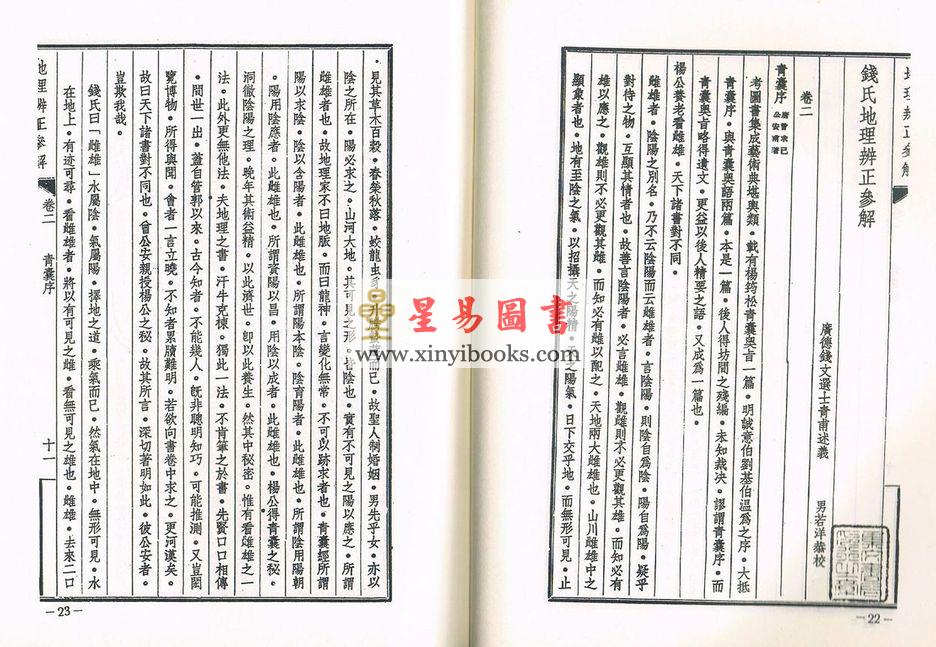 地理辨正參解
錢氏地理辨正參解
廣德錢文選士青甫述義
男若洋恭校
卷二
青囊序
唐曾求己
公安甫著
考圖書集成藝術典堪輿類。載有楊筠松青囊奥肯一篇。明誠意伯劉基伯溫爲之序。大抵
青囊序。與青囊奥語兩篇。本是一篇。後人得坊間之殘編。未知裁决。謬謂青囊序。而
青囊奥旨略得遺文。更益以後人精要之語。又成爲一篇也。
楊公養老看雌雄。天下諸書對不同。
雌雄者。陰陽之別名。乃不云陰陽而云雌雄者。言陰陽。則陰自爲陰。陽自爲陽。疑乎
對待之物。互顯其情者也。故善言陰陽者。必言雌雄。觀雌則不必更觀其雄。而知必有
雄以應之。觀雄則不必更觀其雌。而知必有雌以配之。天地兩大雌雄也。山川雌雄中之
顯象者也。地有至陰之氣。以招攝天之陽精。天之陽氣。日下交乎地。而無形可見。止
22
。見其草木百穀。春榮秋落。蛟龍虫豸。升騰蟄藏而已。故聖人制婚姻。男先乎女。亦以
陰之所在。陽必求之。山河大地。其可見之形。皆陰也。實有不可見之陽以應之。所謂
雌雄者也。故地理家不曰地脈。而曰龍神。言變化無常。不可以跡求者也。青囊經所謂
陽以求陰。陰以含陽者。此雌雄也。所謂陽本陰。陰育陽者。此雌雄也。所謂陰用陽朝
。陽用陰應者。此雌雄也。所謂資陽以昌。用陰以成者。此雌雄也。楊公得青囊之秘。
洞徹陰陽之理。晚年其術益精。以此濟世。卽以此養生。然其中秘密。惟有看雌雄之一
法。此外更無他法。夫地理之書。汗牛充棟。獨此一法。不肯筆之於書。先賢口口相傳
。間世一出。蓋自管郭以來。古今知者。不能幾人。旣非聰明知巧。可能推測。又豈閎
覽博物。所得與聞。會者一言立曉。不知者累牘難明。若欲向書卷中求之。更河漢矣。
故曰天下諸書對不同也。曾公安親授楊公之秘。故其所言。深切著明如此。彼公安者。
豈欺我哉。
錢氏曰「雌雄」水屬陰。氣屬陽。擇地之道。乘氣而已。然氣在地中。無形可見。水
在地上。有迹可尋。看雌雄者。將以有可見之雌。看無可見之雄也。雌雄。去來二口
地理辨正參解
卷二
青囊序
十一
23
星易圖書
www.xinyibooks.com